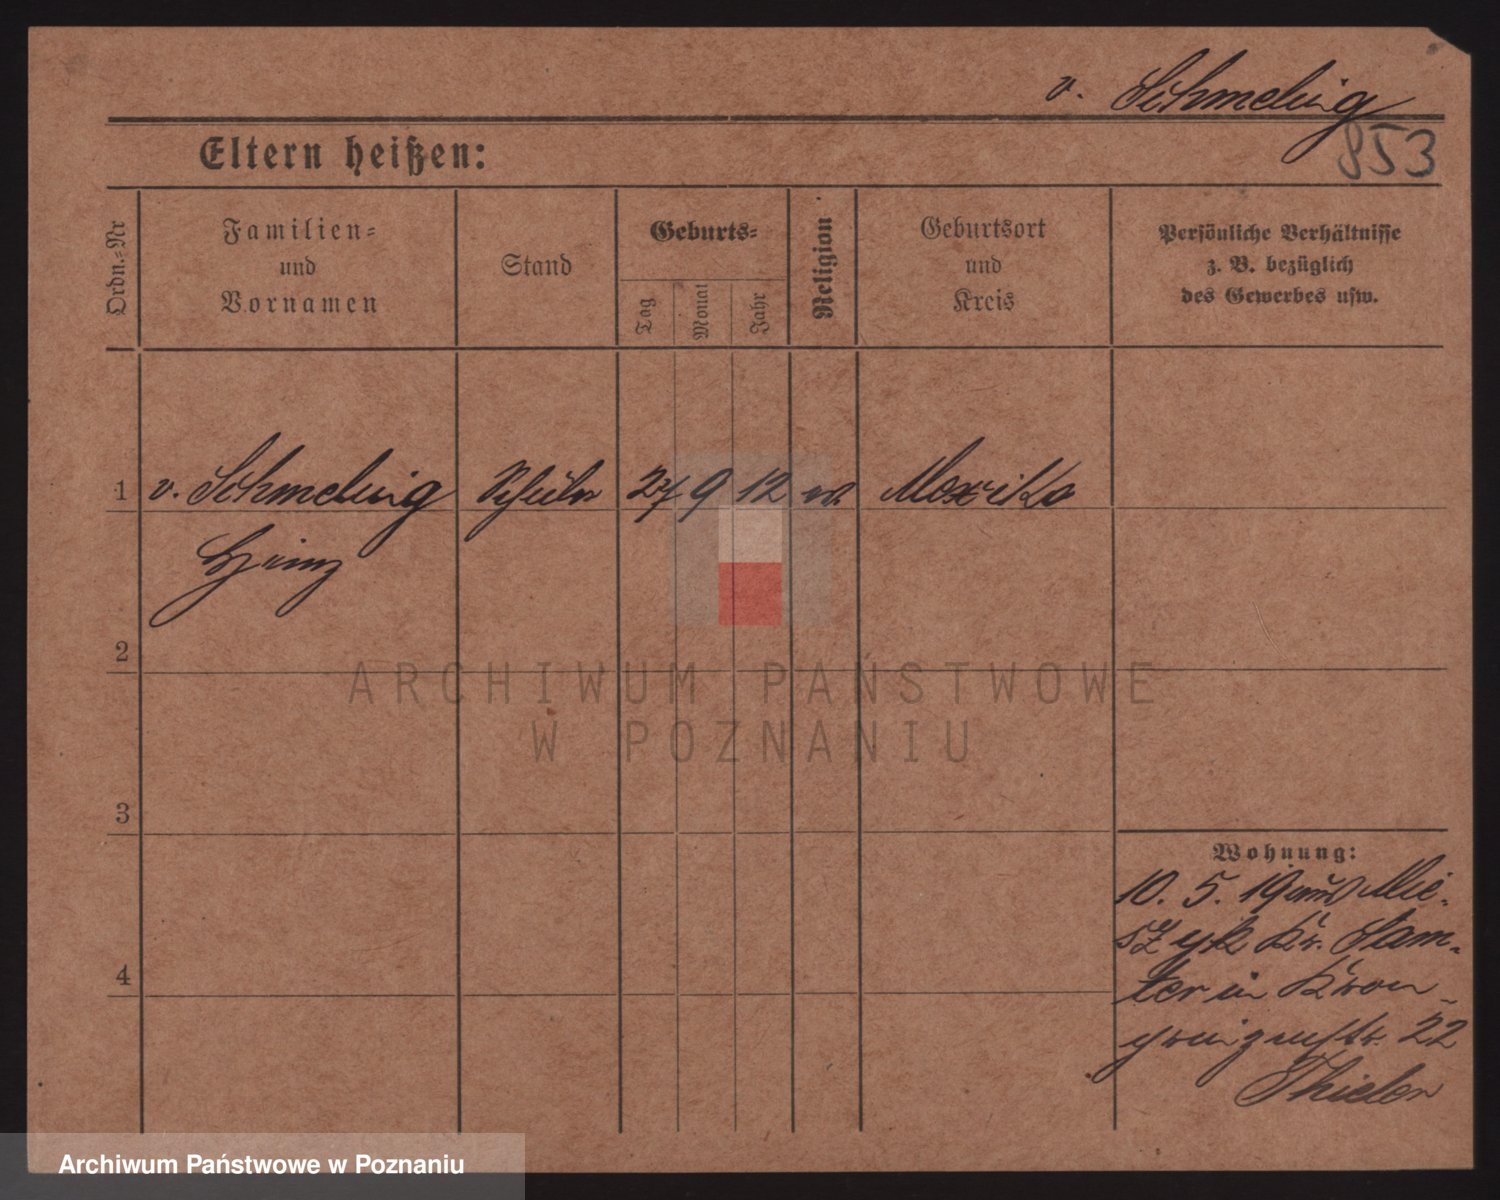 v. Schmeling
853
Eltern heißen:
Ordn.=Nr
Familien=
und
Vornamen
Stand
Geburts=
Tag
Monat
Jahr
Religion
Geburtsort
und
Kreis
Persönliche Verhältnisse
z. B. bezüglich
des Gewerbes usw.
1 v. Schmeling Schüler 27 9 12 ev. Mexiko
Heinz
2
3
4
Wohnung:
10. 5. 19 aus Mie-
Kr. Sam-
ter in Kron-
prinzenstr. 22
Thieler
ARCHIWUM PAŃSTWOWE
W POZNANIU
Archiwum Państwowe w Poznaniu